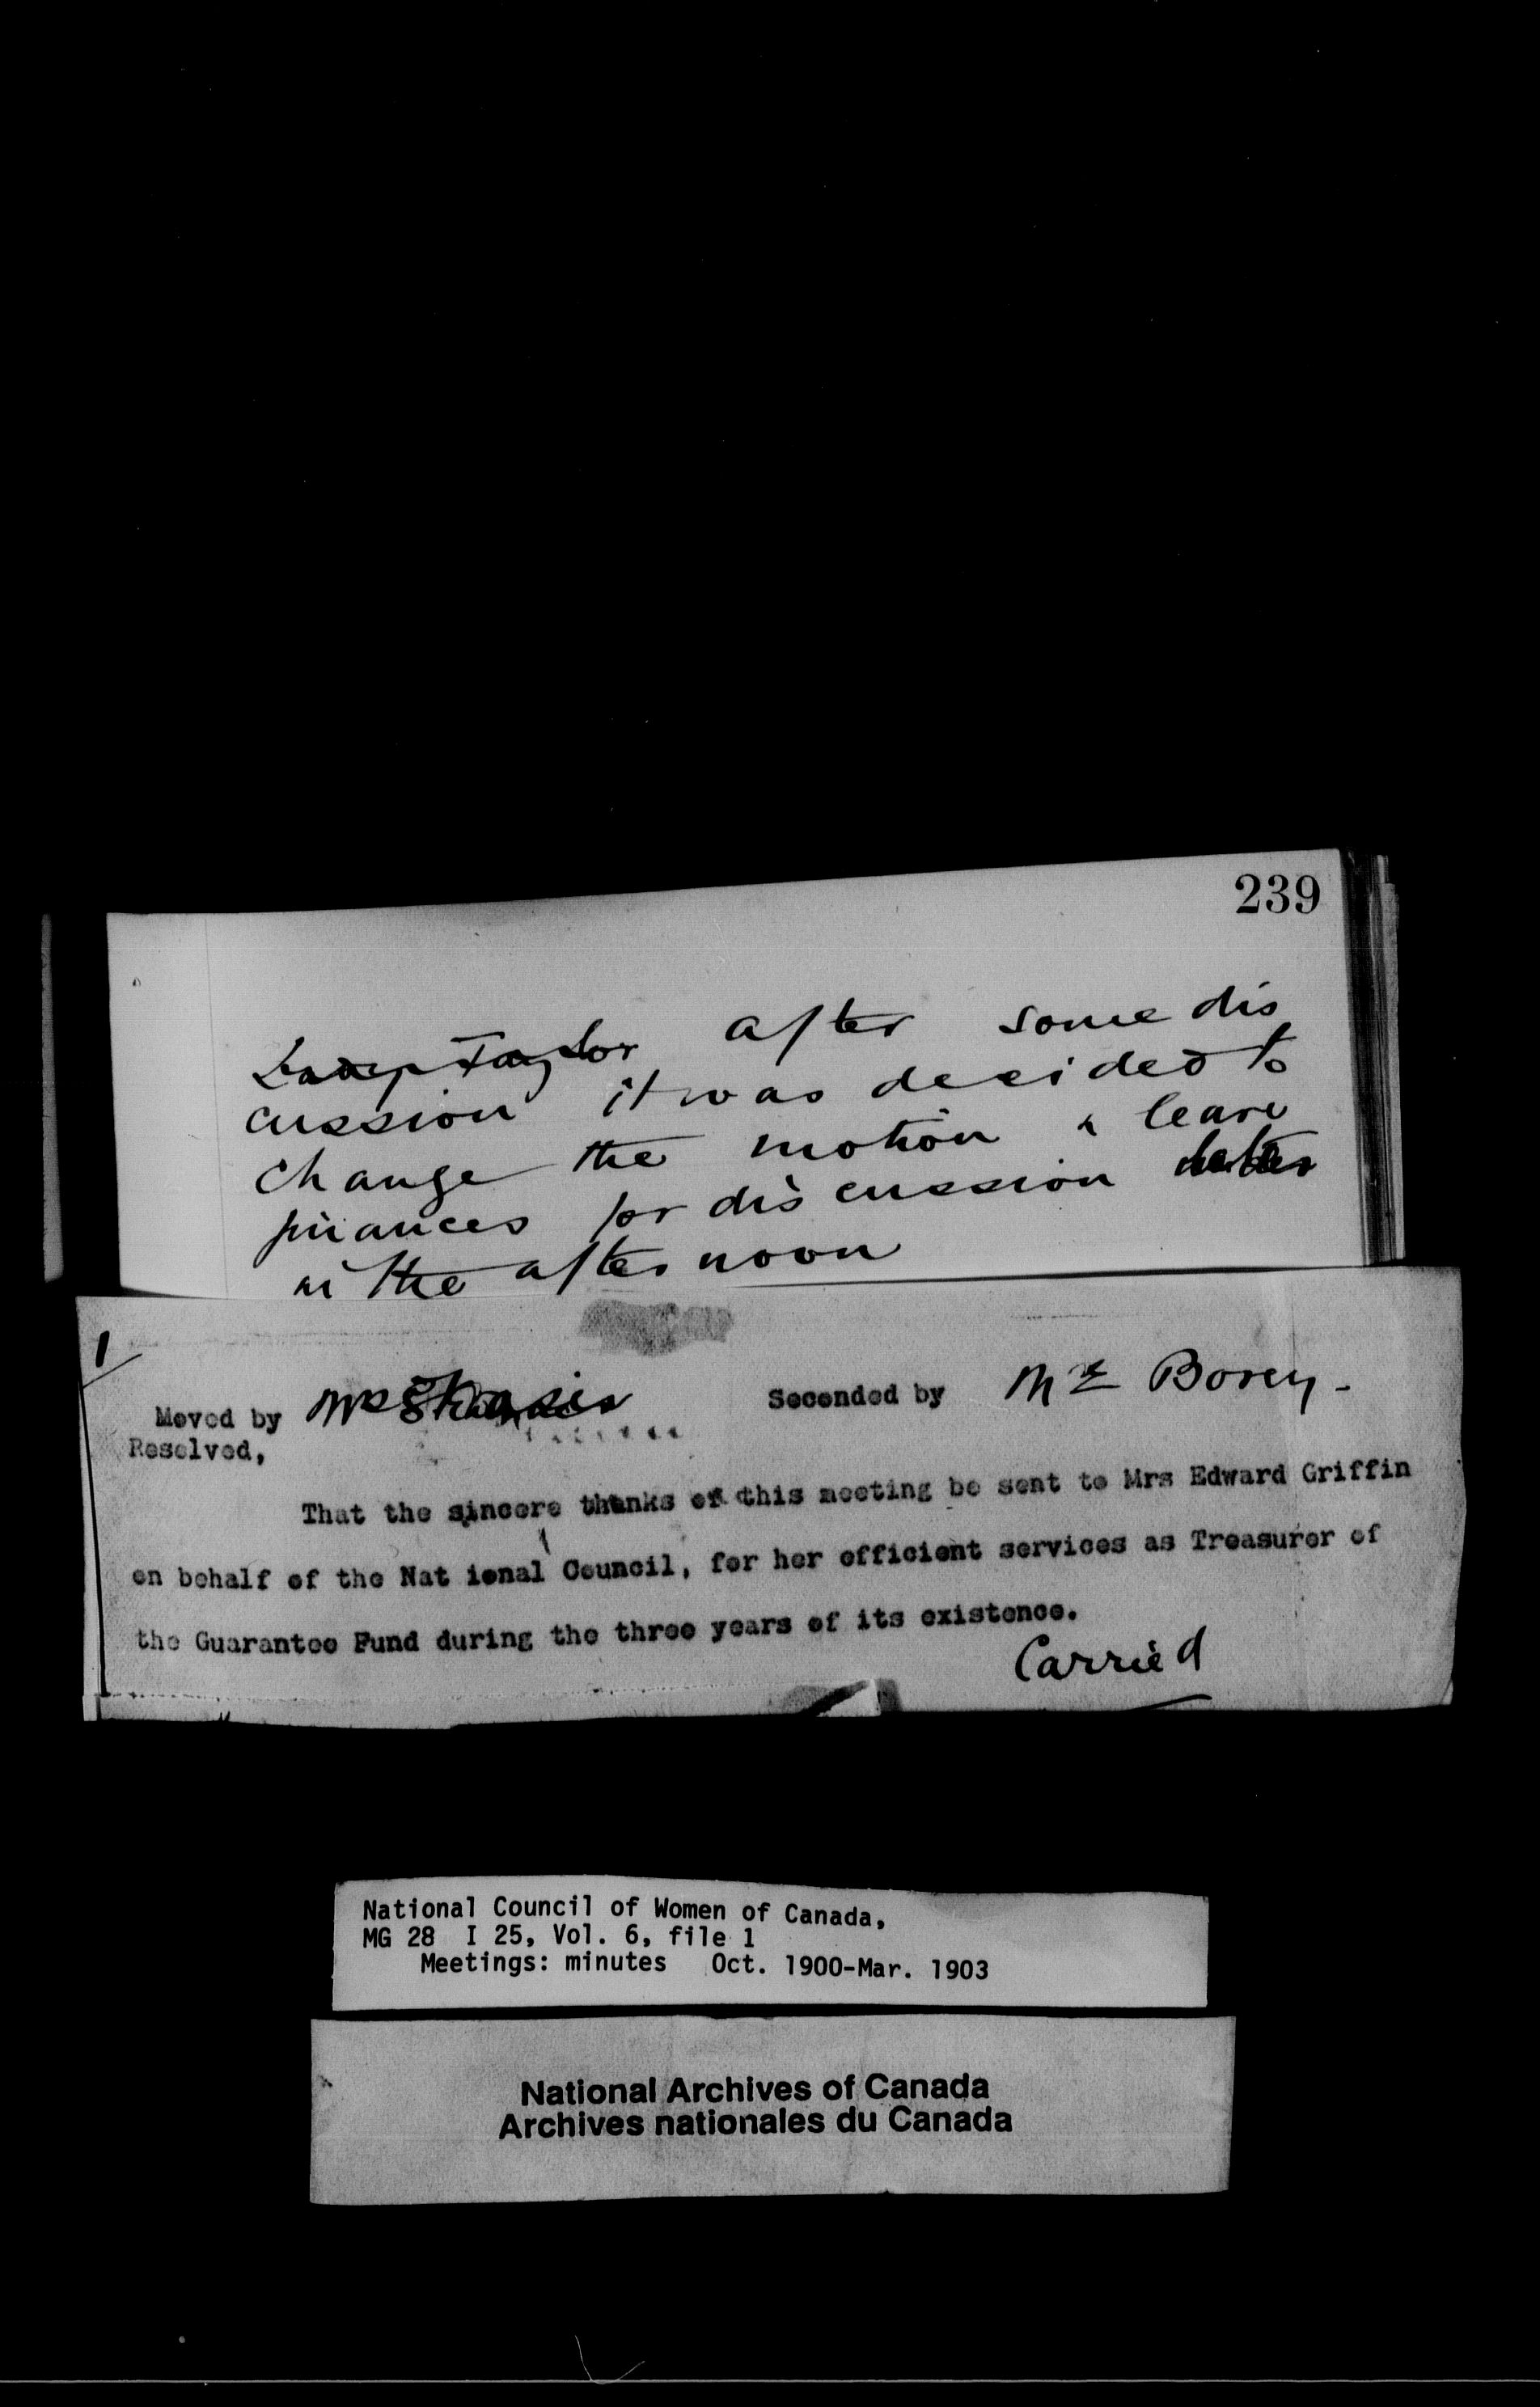 239
Lady Taylor after some dis
cussion it was decided to
change the motion & leave
finances for discussion
in the afternoon
1
Moved by Mrs Seconded by Mrs
Resolved,
That the sincere thanks of this meeting be sent to Mrs Edward Griffin
on behalf of the Nat ional Council, for her efficient services as Treasurer of
the Guarantee Fund during the three years of its existence.
Carried
National Council of Women of Canada,
MG 28 I 25, Vol. 6, file 1
Meetings: minutes Oct. 1900-Mar. 1903
National Archives of Canada
Archives nationales du Canada